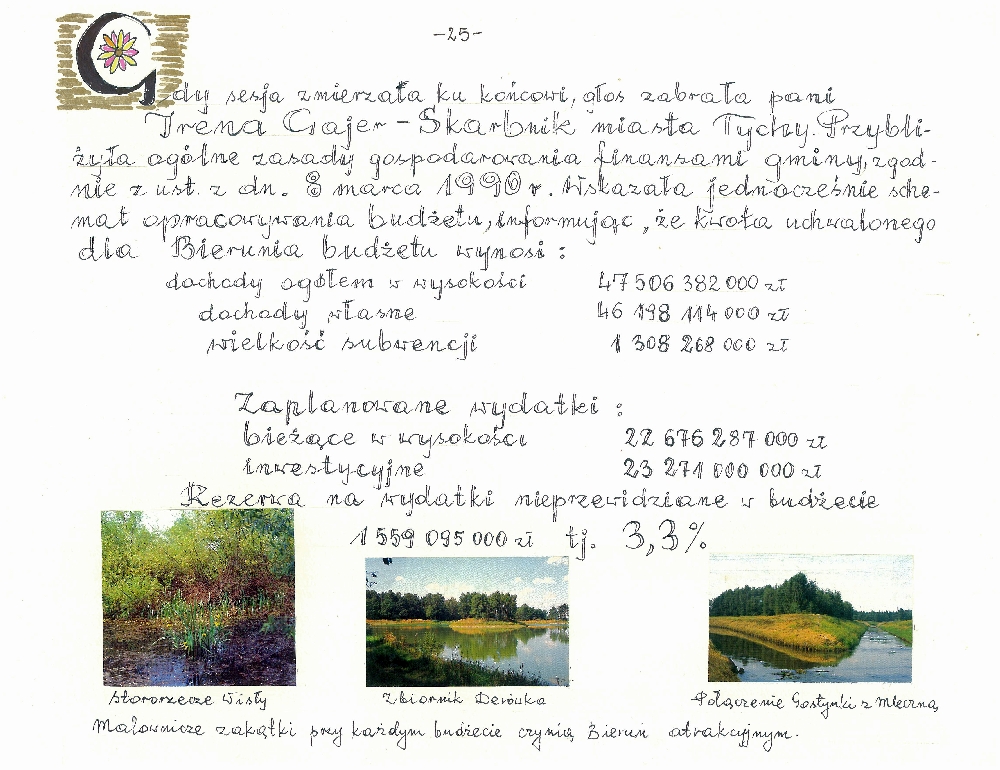 -25-
Gdy sesja zmierzała ku końcowi, głos zabrała pani
Irena Gajer - Skarbnik miasta Tychy. Przybli-
żyła ogólne zasady gospodarowania finansami gminy, zgod-
nie z ust. z dn. 8 marca 1990 r. Wskazała jednocześnie sche-
mat opracowywania budżetu, informując, że kwota uchwalonego
dla Bierunia budżetu wynosi :
dochody ogółem w wysokości 47 506 382 000 zł
dochody własne 46 198 114 000 zł
wielkość subwencji 1 308 268 000 zł
Zaplanowane wydatki :
bieżące w wysokości 22 676 287 000 zł
inwestycyjne 23 271 000 000 zł
Rezerwa na wydatki nieprzewidziane w budżecie
1 559 095 000 zł tj. 3,3%
Starorzecze Wisły Zbiornik Derówka Połączenie Gostynki z Mleczną
Malownicze zakątki przy każdym budżecie czynią Bieruń atrakcyjnym.